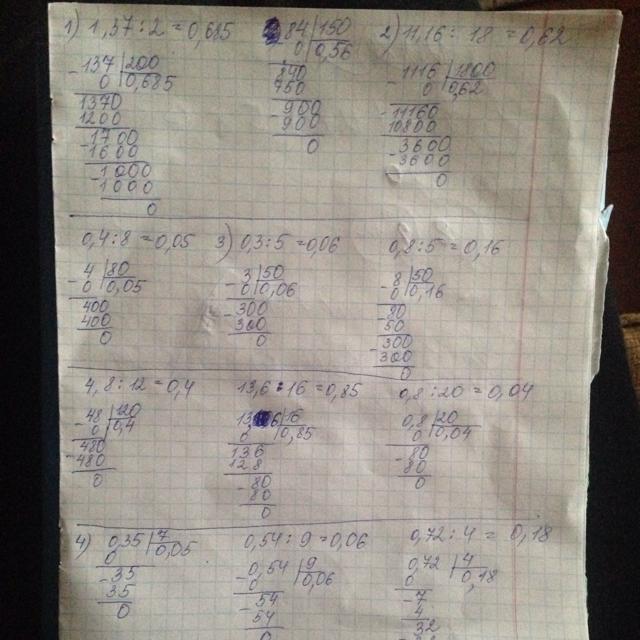 1) 1,37 : 2 = 0,685
137 | 200
- 0 | 0,685
1370
1200
- 1700
1600
- 1000
1000
0
84 | 150
- 0 | 0,56
840
750
- 900
900
0
2) 11,16 : 18 = 0,62
- 1116 | 1800
0 | 0,62
- 11160
10800
- 3600
3600
0
0,4 : 8 = 0,05
4 | 80
- 0 | 0,05
400
400
0
3) 0,3 : 5 = 0,06
3 | 50
- 0 | 0,06
300
300
0
0,8 : 5 = 0,16
8 | 50
- 0 | 0,16
- 80
50
- 300
300
0
4,8 : 12 = 0,4
48 | 120
- 0 | 0,4
- 480
480
0
13,6 : 16 = 0,85
0 | 0,85
136
128
- 80
80
0
0,8 : 20 = 0,04
0,8 | 20
0 | 0,04
- 80
80
0
4) 0,35 | 7
0 | 0,05
- 35
35
0
0,54 : 9 = 0,06
0,54 | 9
- 0 | 0,06
- 54
54
0
0,72 : 4 = 0,18
0,72 | 4
0 | 0,18
- 7
4
32